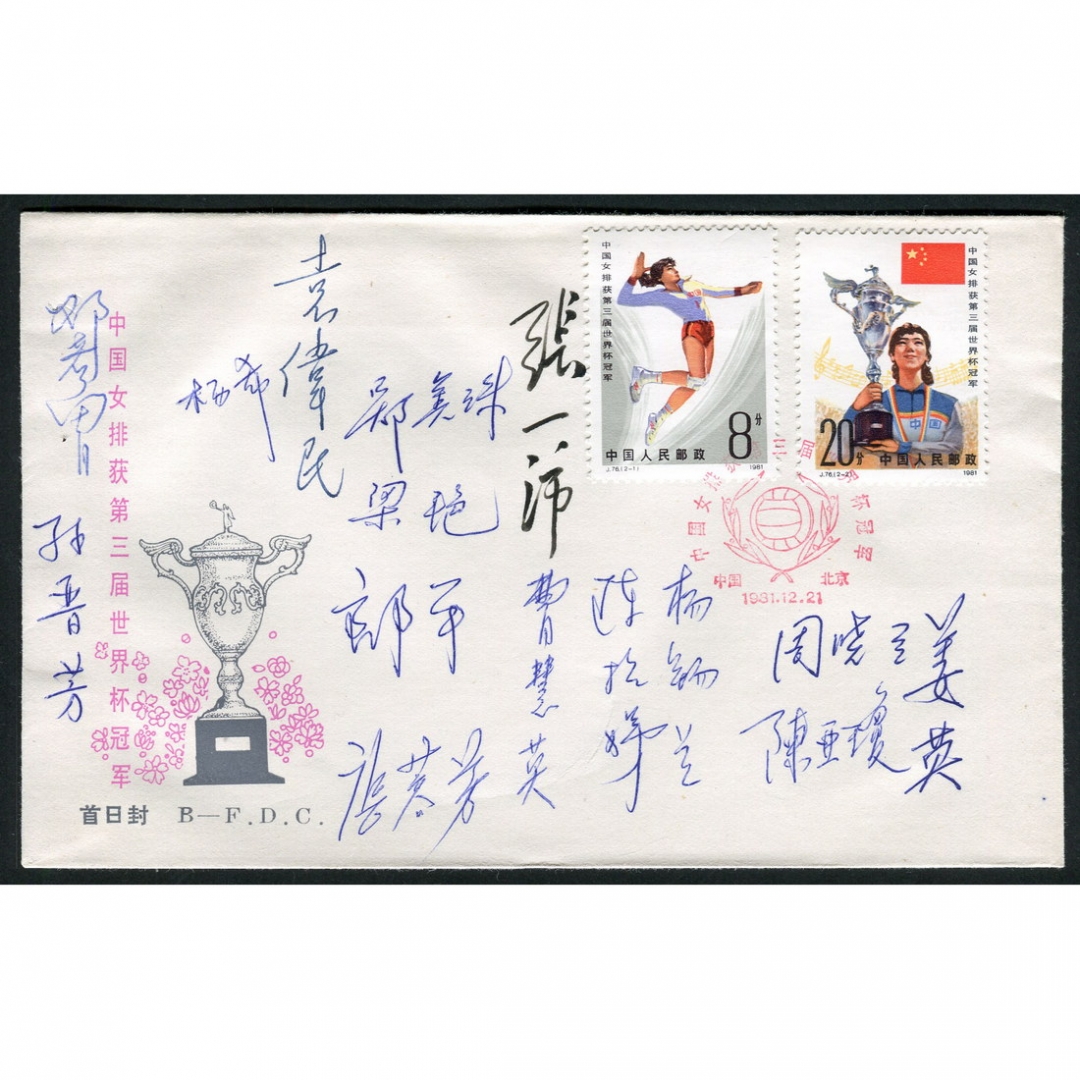 中国女排获第三届世界杯冠军
首日封 B—F.D.C.
邓若曾
孙晋芳
杨希
袁偉民
郑美珠
梁艳
郎平
张蓉芳
張一沛
曹慧英
陈招娣
杨锡兰
周晓兰
陳亚瓊
姜英
中国女排获第三届世界杯冠军
8分
中国人民邮政
J.76.(2-1) 1981
中国女排获第三届世界杯冠军
中国
20分 中国人民邮政
J.76.(2-2) 1981
中国女排获第三届世界杯冠军
中国 北京
1981.12.21